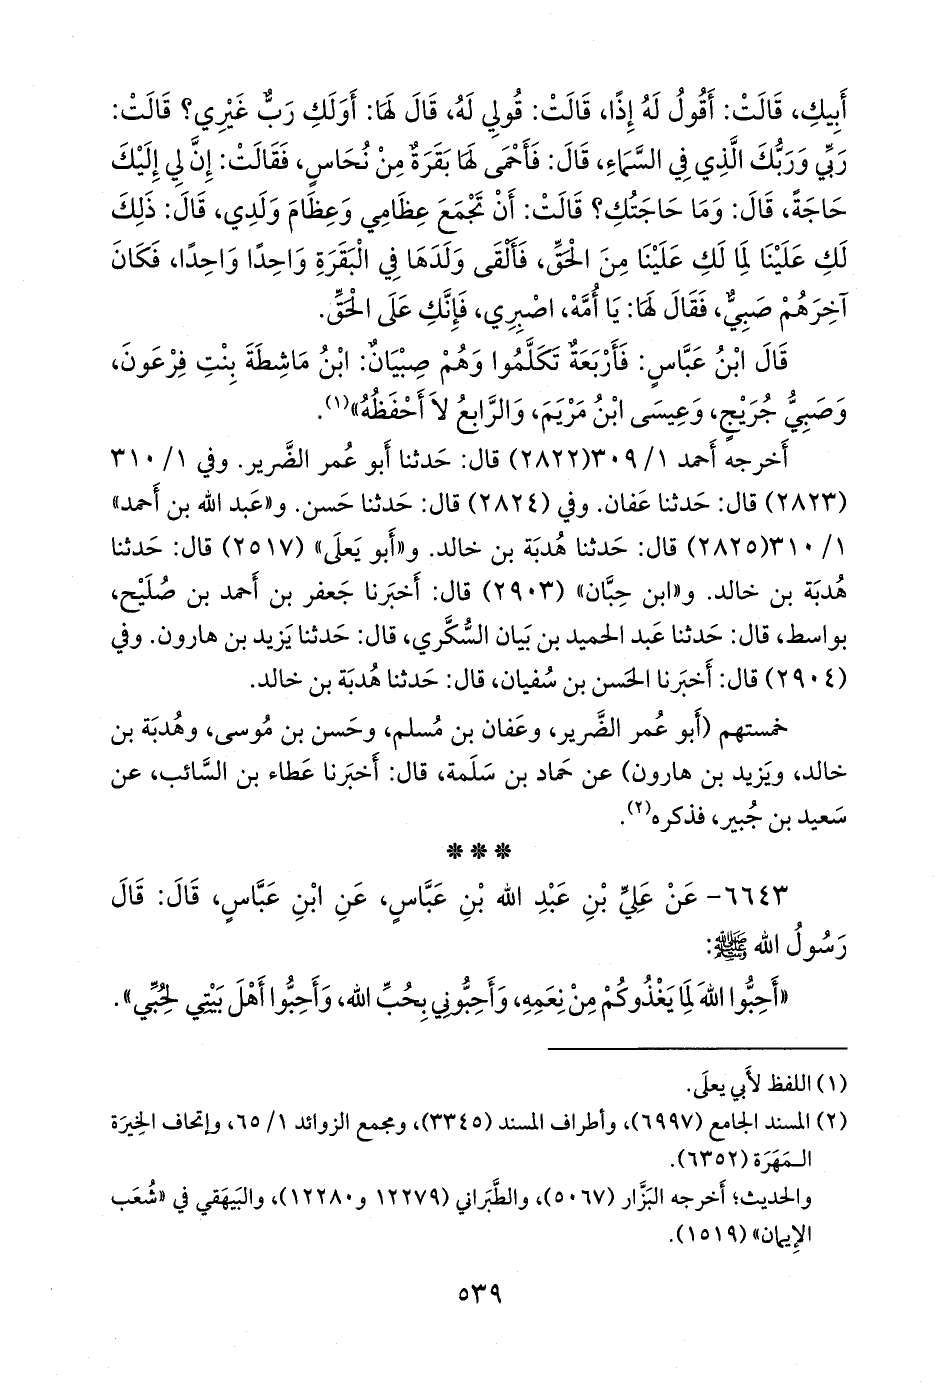 أَبِيكِ، قَالَتْ: أَقُولُ لَهُ إِذًا، قَالَتْ: قُولِي لَهُ، قَالَ لَهَا: أَوَلَكِ رَبٌّ غَيْرِي؟ قَالَتْ:
رَبِّي وَرَبُّكَ الَّذِي فِي السَّمَاءِ، قَالَ: فَأَحْمَى لَهَا بَقَرَةً مِنْ نُحَاسٍ، فَقَالَتْ: إِنَّ لِي إِلَيْكَ
حَاجَةً، قَالَ: وَمَا حَاجَتُكِ؟ قَالَتْ: أَنْ تَجْمَعَ عِظَامِي وَعِظَامَ وَلَدِي، قَالَ: ذَلِكَ
لَكِ عَلَيْنَا لِمَا لَكِ عَلَيْنَا مِنَ الْحَقِّ، فَأَلْقَى وَلَدَهَا فِي الْبَقَرَةِ وَاحِدًا وَاحِدًا، فَكَانَ
آخِرَهُمْ صَبِيٌّ، فَقَالَ لَهَا: يَا أُمَّهْ، اصْبِرِي، فَإِنَّكِ عَلَى الْحَقِّ.
قَالَ ابْنُ عَبَّاسٍ: فَأَرْبَعَةٌ تَكَلَّمُوا وَهُمْ صِبْيَانٌ: ابْنُ مَاشِطَةَ بِنْتِ فِرْعَونَ،
وَصَبِيُّ جُرَيْجٍ، وَعِيسَى ابْنُ مَرْيَمَ، وَالرَّابِعُ لاَ أَحْفَظُهُ»(١).
أَخرجه أَحمد ١/ ٣٠٩(٢٨٢٢) قال: حَدثنا أَبو عُمر الضَّرير. وفي ١/ ٣١٠
(٢٨٢٣) قال: حَدثنا عَفان. وفي (٢٨٢٤) قال: حَدثنا حَسن. و«عَبد الله بن أَحمد»
١/ ٣١٠(٢٨٢٥) قال: حَدثنا هُدبَة بن خالد. و«أَبو يَعلَى» (٢٥١٧) قال: حَدثنا
هُدبَة بن خالد. و«ابن حِبَّان» (٢٩٠٣) قال: أَخبَرنا جَعفر بن أَحمد بن صُلَيْح،
بواسط، قال: حَدثنا عَبد الحميد بن بَيان السُّكَّري، قال: حَدثنا يَزيد بن هارون. وفي
(٢٩٠٤) قال: أَخبَرنا الحَسن بن سُفيان، قال: حَدثنا هُدبَة بن خالد.
خمستهم (أَبو عُمر الضَّرير، وعَفان بن مُسلم، وحَسن بن مُوسى، وهُدبَة بن
خالد، ويَزيد بن هارون) عن حَماد بن سَلَمة، قال: أَخبَرنا عَطاء بن السَّائب، عن
سَعيد بن جُبير، فذكره(٢).
* * *
٦٦٤٣- عَنْ عَلِيِّ بْنِ عَبْدِ الله بْنِ عَبَّاسٍ، عَنِ ابْنِ عَبَّاسٍ، قَالَ: قَالَ
رَسُولُ الله ﷺ:
«أَحِبُّوا اللهَ لِمَا يَغْذُوكُمْ مِنْ نِعَمِهِ، وَأَحِبُّونِي بِحُبِّ الله، وَأَحِبُّوا أَهْلَ بَيْتِي لِحُبِّي».
(١) اللفظ لأَبي يعلَى.
(٢) المسند الجامع (٦٩٩٧)، وأطراف المسند (٣٣٤٥)، ومجمع الزوائد ١/ ٦٥، وإتحاف الخِيرَة
المَهَرَة (٦٣٥٢).
والحديث؛ أَخرجه البَزَّار (٥٠٦٧)، والطَّبَراني (١٢٢٧٩ و١٢٢٨٠)، والبَيهَقي في «شُعَب
الإِيمان» (١٥١٩).
٥٣٩